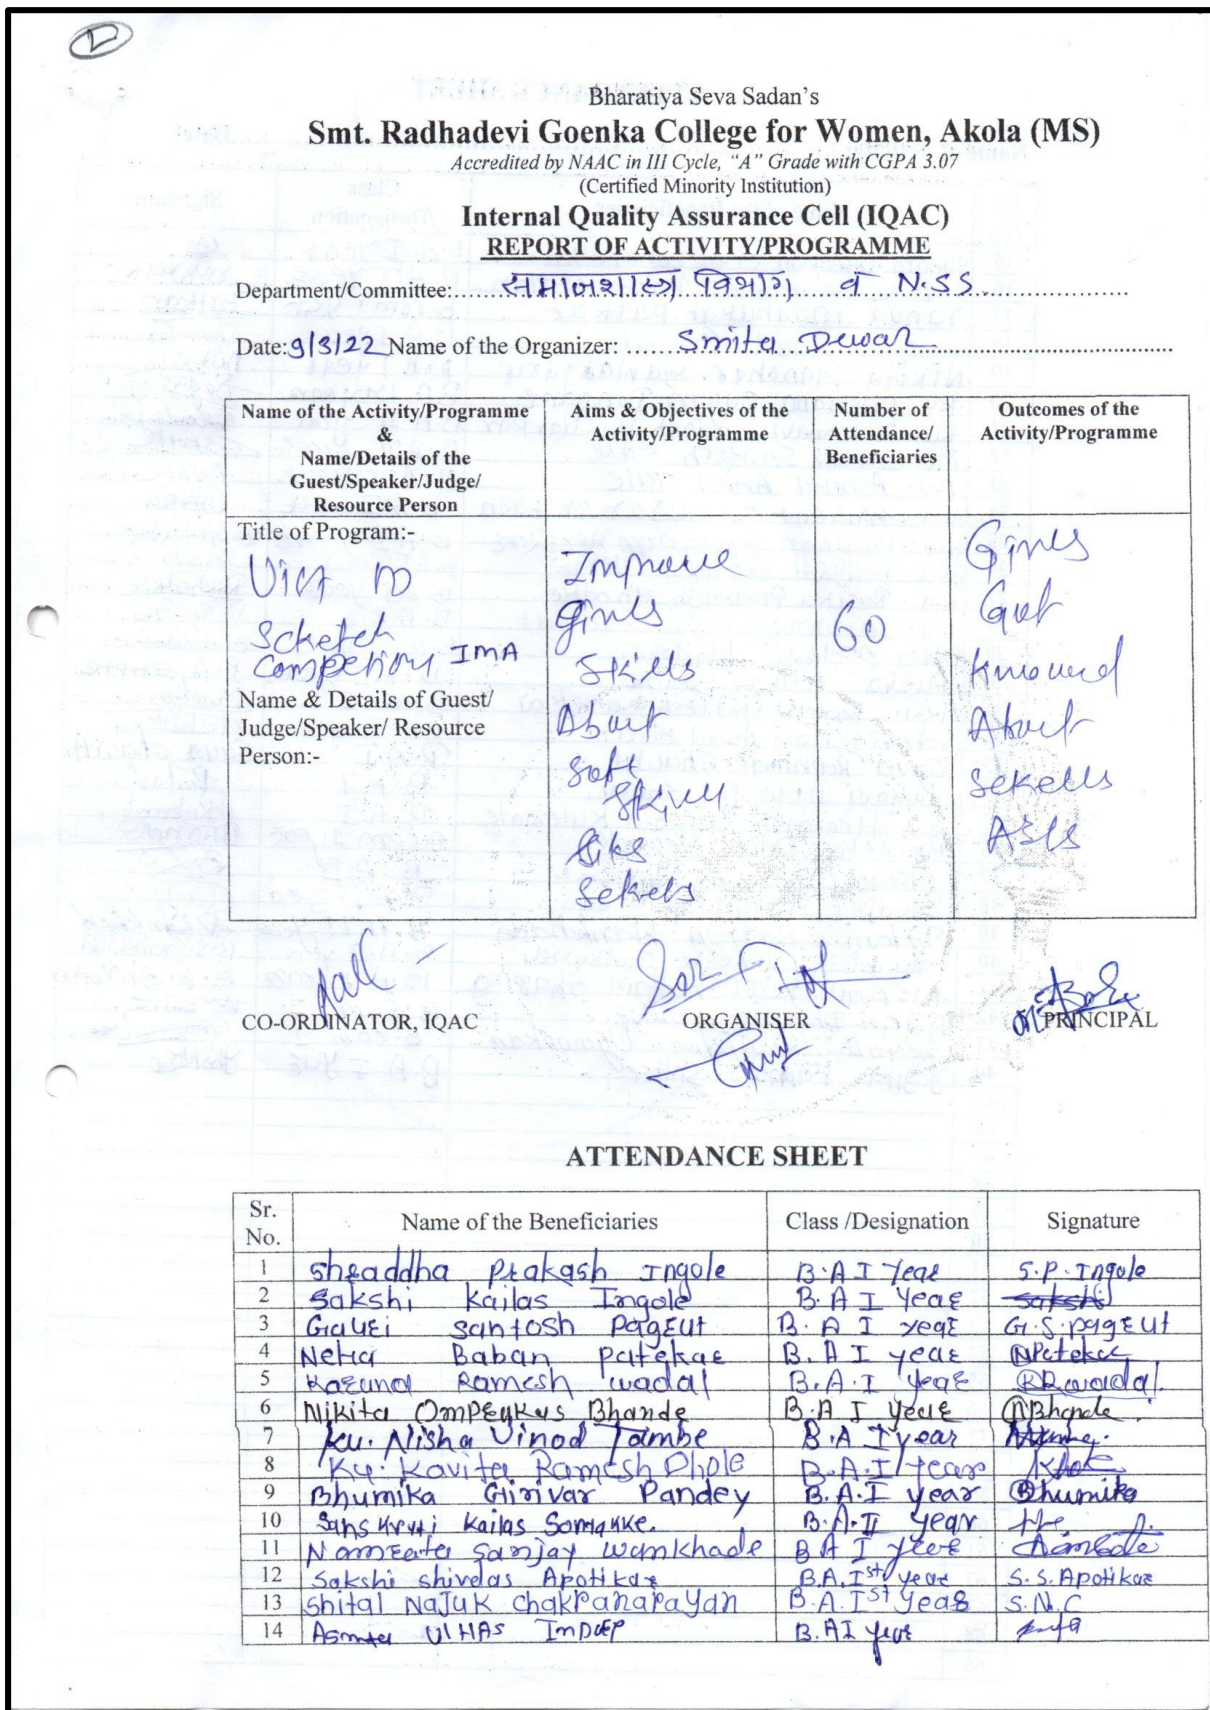 Bharatiya Seva Sadan's
Smt. Radhadevi Goenka College for Women, Akola (MS)
Accredited by NAAC in III Cycle, "A" Grade with CGPA 3.07
(Certified Minority Institution)
Internal Quality Assurance Cell (IQAC)
REPORT OF ACTIVITY/PROGRAMME
Department/Committee: समाजशास्त्र विभाग व N.S.S.
Date: 9/3/22 Name of the Organizer: Smita Dewar
Name of the Activity/Programme & Name/Details of the Guest/Speaker/Judge/ Resource Person
Aims & Objectives of the Activity/Programme
Number of Attendance/ Beneficiaries
Outcomes of the Activity/Programme
Title of Program:-
Scketch
IMA
Name & Details of Guest/
Judge/Speaker/ Resource
Person:-
Improve
girls
Skills
About
Soft
60
Girls
Got
About
CO-ORDINATOR, IQAC ORGANISER PRINCIPAL
ATTENDANCE SHEET
Sr. No. Name of the Beneficiaries Class /Designation Signature
1 Shraddha Prakash Ingole B.A I Year S.P. Ingole
2 Sakshi Kailas Ingole B.A I Year Sakshi
3 Gauri Santosh Pagrut B.A I year G.S. pagrut
4 Neha Baban Patekar B.A I year NPatekar
5 Karuna Ramesh wadal B.A.I year RRwadal.
6 Nikita Bhande B.A I Year NBhande
7 Ku. Nisha Vinod Tambe B.A I year
8 Ku. Kavita Ramesh Dhole B.A.I Year
9 Bhumika Girivar Pandey B.A.I year Bhumika
10 Kailas B.A.II year
11 Namrata Sanjay wamkhade B A I year
12 Sakshi shivdas Apotikar B.A.Ist year S.S. Apotikar
13 Shital Najuk Chakranarayan B.A.Ist Year S.N.C
14 Asmita UlHAS B.A I year